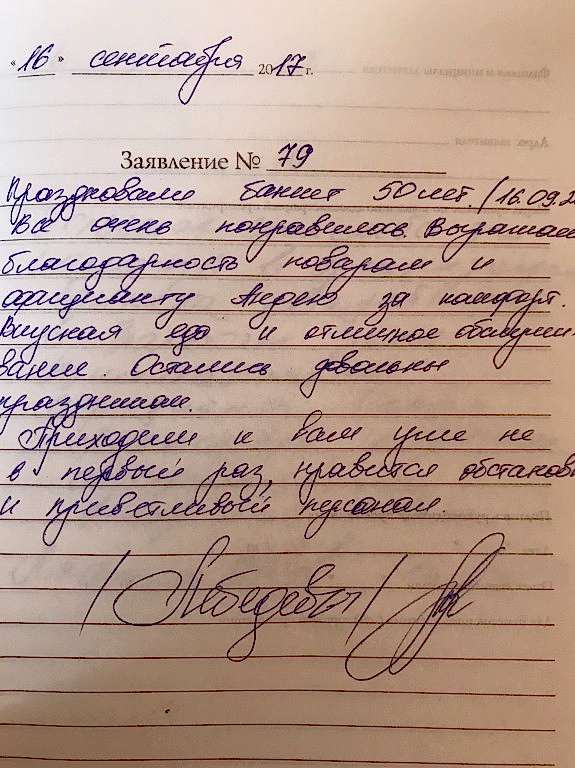 «16» сентября 2017 г.
Заявление № 79
Праздновали банкет 50 лет /16.09.2
Все очень понравилось. Выражаем
благодарность поварам и
официанту Андрею за комфорт.
Вкусная еда и отличное обслужи-
вание. Остались довольны
праздником.
Приходим к вам уже не
в первый раз, нравится обстановк
и приветливый персонал.
/Лебедевы/